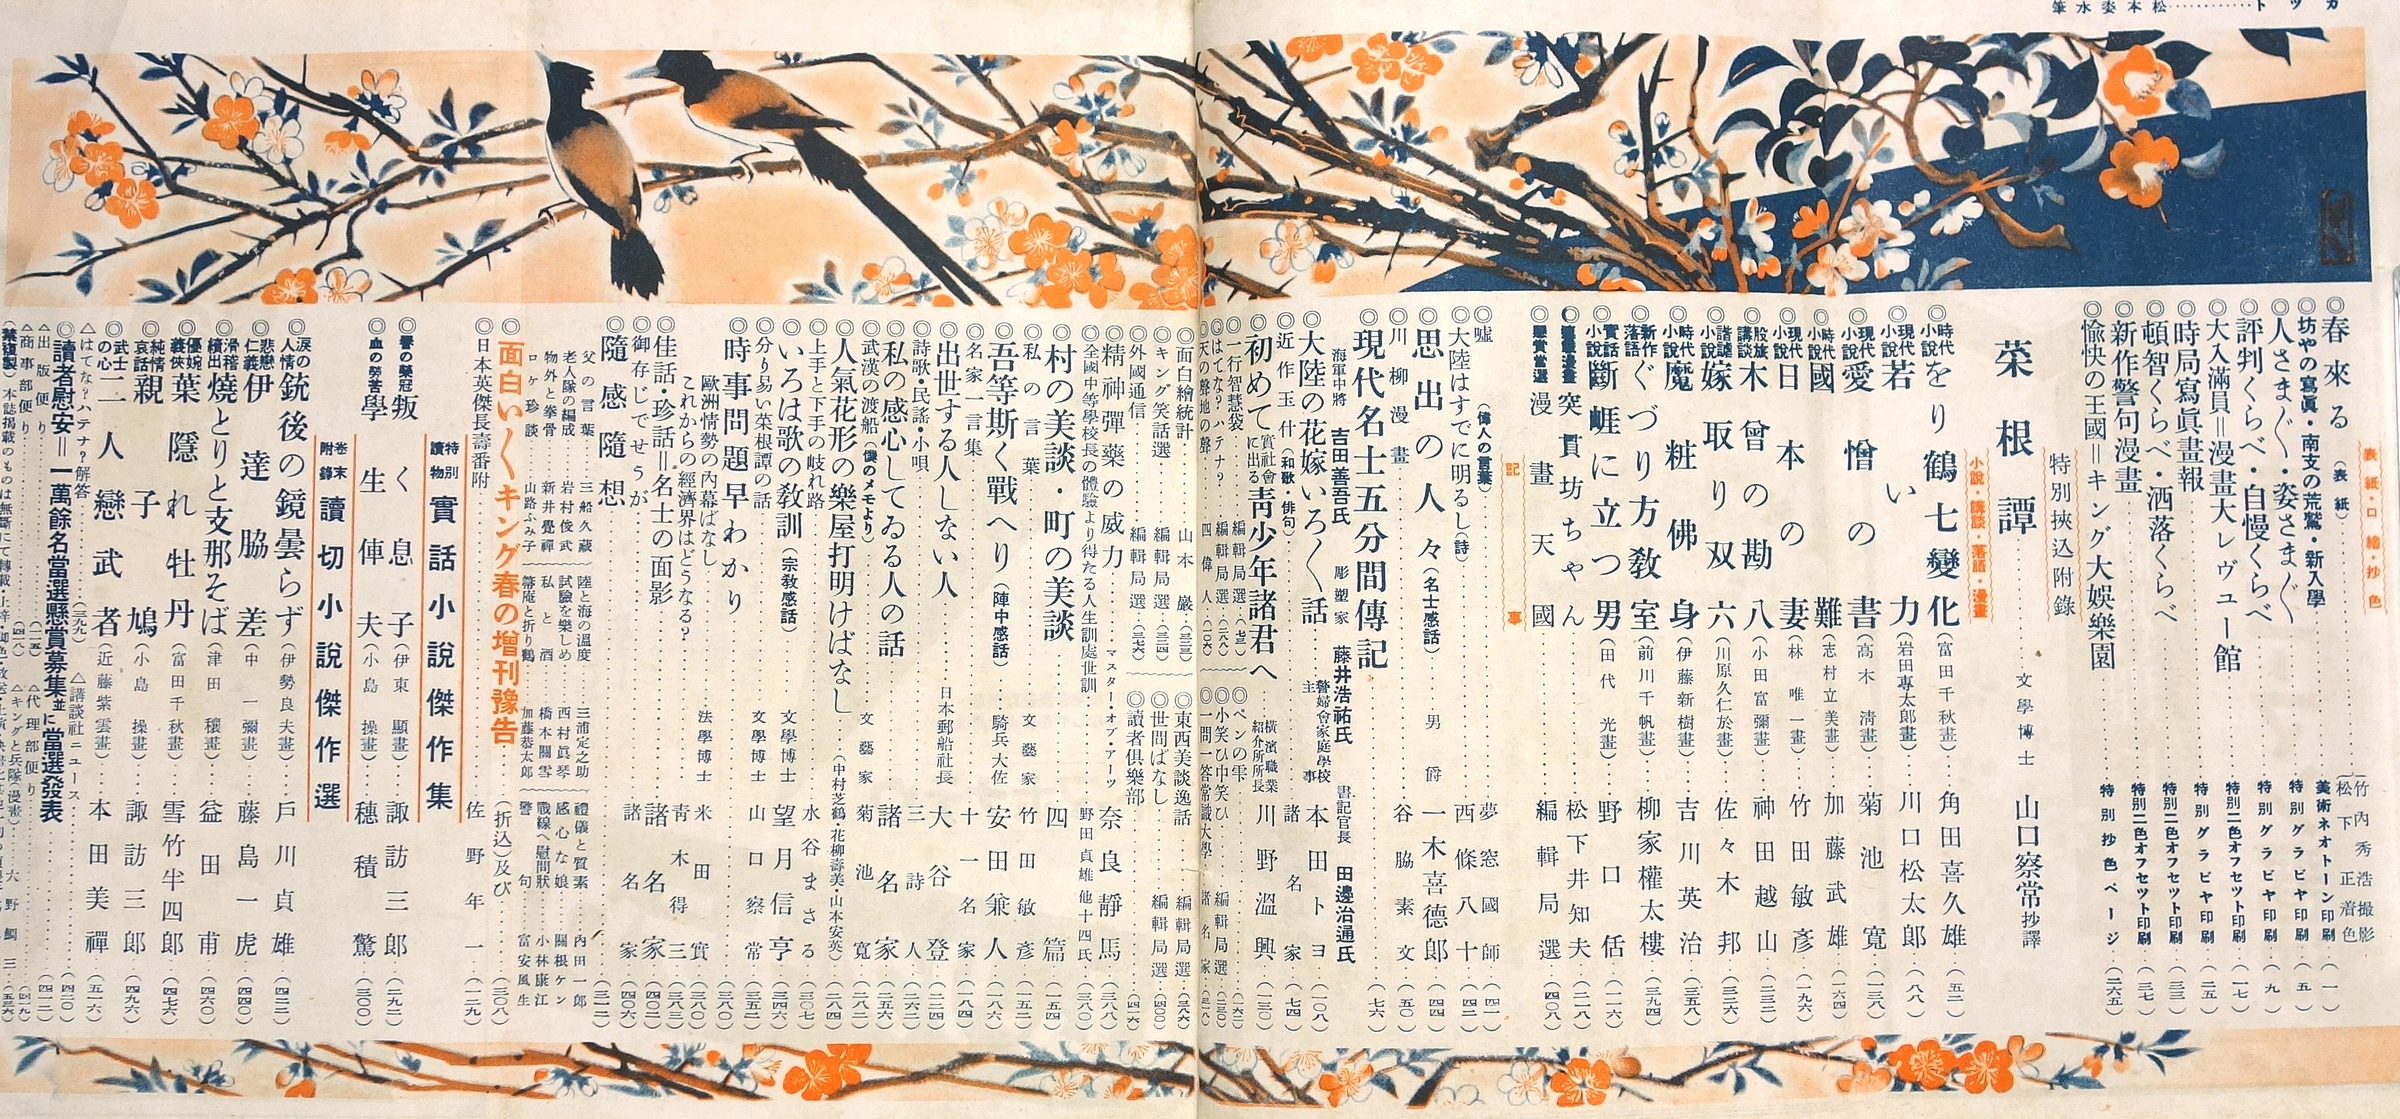 カット……………松本姿水筆
表紙・口繪・抄色
◎春來る(表紙)……竹內秀浩撮影 松下正着色
◎坊やの寫眞・南支の荒鷲・新入學……美術ネオトーン印刷…(一)
◎人さま〴〵・姿さま〴〵……特別グラビヤ印刷…(五)
◎評判くらべ・自慢くらべ……特別グラビヤ印刷…(九)
◎大入滿員＝漫畫大レヴュー館……特別二色オフセット印刷…(一七)
◎時局寫眞畫報……特別グラビヤ印刷…(二五)
◎頓智くらべ・洒落くらべ……特別二色オフセット印刷…(三三)
◎新作警句漫畫……特別二色オフセット印刷…(三七)
◎愉快の王國＝キング大娛樂園……特別抄色ページ…(二六五)
特別挾込附錄
菜根譚……文學博士 山口察常抄譯
小說・講談・落語・漫畫
◎時代小說をり鶴七變化(富田千秋畫)…角田喜久雄…(五二)
◎現代小說若い力(岩田專太郎畫)…川口松太郎…(八八)
◎現代小說愛憎の書(高木淸畫)…菊池寬…(一三八)
◎時代小說國難(志村立美畫)…加藤武雄…(一六四)
◎現代小說日本の妻(林唯一畫)…竹田敏彥…(一九六)
◎股旅講談木曾の勘八(小田富彌畫)…神田越山…(二三二)
◎諧謔小說嫁取り双六(川原久仁於畫)…佐々木邦…(三二六)
◎時代小說魔粧佛身(伊藤新樹畫)…吉川英治…(三五八)
◎新作落語ぐづり方敎室(前川千帆畫)…柳家權太樓…(三九四)
◎實話小說斷崕に立つ男(田代光畫)…野口佸…(一一六)
◎連載漫畫突貫坊ちゃん……松下井知夫…(二一八)
◎懸賞當選漫畫天國……編輯局選…(四〇八)
記事
◎嘘(偉人の言葉)……夢窓國師…(四一)
◎大陸はすでに明るし(詩)……西條八十…(四二)
◎思出の人々(名士感話)…男爵 一木喜德郎…(四四)
◎川柳漫畫……谷脇素文…(五〇)
◎現代名士五分間傳記……(七六)
海軍中將 吉田善吾氏 彫塑家 藤井浩祐氏 書記官長 田邊治通氏
◎大陸の花嫁いろ〳〵話……警婦會家庭學校主事 本田トヨ…(一〇八)
◎近作玉什(和歌・俳句)……諸名家…(七四)
◎初めて實社會に出る靑少年諸君へ…橫濱職業紹介所所長 川野溫興…(一三〇)
◎一行智慧袋…編輯局選…(七三)
◎はてな?ハテナ?…編輯局選…(三八八)
◎天の聲地の聲…四偉人…(一〇六)
◎ペンの雫……(一六二)
◎小笑ひ中笑ひ…編輯局選…(三五〇)
◎一問一答常識大學…諸名家…(三一八)
◎面白繪統計……山本巖…(三三三)
◎キング笑話選……編輯局選…(三三四)
◎外國通信……編輯局選…(三七六)
◎東西美談逸話……編輯局選…(三八六)
◎世間ばなし……編輯局選…(四〇〇)
◎讀者俱樂部……(四一六)
◎精神彈藥の威力……マスター・オブ・アーツ 奈良靜馬…(三八八)
◎全國中等學校長の體驗より得たる人生訓處世訓…野田貞雄他十四氏…(三八〇)
◎村の美談・町の美談……四篇…(一五四)
◎私の言葉……文藝家 竹田敏彥…(一五二)
◎吾等斯く戰へり(陣中感話)…騎兵大佐 安田兼人…(一八六)
◎名家一言集……十一名家…(一八四)
◎出世する人しない人……日本郵船社長 大谷登…(二二四)
◎詩歌・民謠・小唄……三詩人…(二六二)
◎私の感心してゐる人の話……諸名家…(二五六)
◎武漢の渡船(僕のメモより)……文藝家 菊池寬…(二五二)
◎人氣花形の樂屋打明けばなし…(中村芝鶴・花柳壽美・山本安英)…(二八四)
◎上手と下手の岐れ路……水谷まさる…(三〇七)
◎いろは歌の敎訓(宗敎感話)……文學博士 望月信亨…(三四六)
◎分り易い菜根譚の話……文學博士 山口察常…(三五二)
◎時事問題早わかり……(三八〇)
歐洲情勢の內幕ばなし……米田實…(三八〇)
これからの經濟界はどうなる?……法學博士 靑木得三…(三八三)
◎佳話・珍話＝名士の面影……諸名家…(四〇二)
◎御存じでせうが……諸名家…(四〇六)
◎隨感隨想……(三一二)
父の言葉…三船久藏
老人隊の編成…岩村俊武
物外と拳骨…新井覺禪
ロケ珍談…山路ふみ子
陸と海の溫度…三浦定之助
試驗を樂しめ…西村眞琴
私と酒…橋本關雪
箒庵と折り鶴…加藤恭太郎
禮儀と質素…內田一郎
感心な娘…關根ケン
戰線へ慰問狀…小林康江
警句…富安風生
面白い〳〵キング春の增刊豫告……(折込)及び…(三〇八)
◎日本英傑長壽番附……佐野年一…(一二九)
特別讀物 實話小說傑作集
◎譽の榮冠叛く息子(伊東顯畫)…諏訪三郎…(二九二)
◎血の勞苦學生俥夫(小島操畫)…穗積驚…(三〇〇)
卷末附錄 讀切小說傑作選
◎淚の人情銃後の鏡曇らず(伊勢良夫畫)…戶川貞雄…(四二二)
◎悲戀仁義伊達脇差(中一彌畫)…藤島一虎…(四四〇)
◎滑稽續出燒とりと支那そば(津田穰畫)…益田甫…(四六〇)
◎優婉義俠葉隱れ牡丹(富田千秋畫)…雪竹半四郎…(四七六)
◎純情哀話親子鳩(小島操畫)…諏訪三郎…(四九六)
◎武士の心二人戀武者(近藤紫雲畫)…本田美禪…(五一六)
△はてな?ハテナ?解答…(三九九)
△講談社ニュース……(四二〇)
◎讀者慰安＝一萬餘名當選懸賞募集並に當選發表…(四一二)
△出版便り…(一一五)
△代理部便り…(四一九)
△商事部便り…(四一八)
△キングと兵隊(漫畫)…大野鯛三…(五三六)
(禁複製)本誌揭載のものは無斷にて轉載・上梓